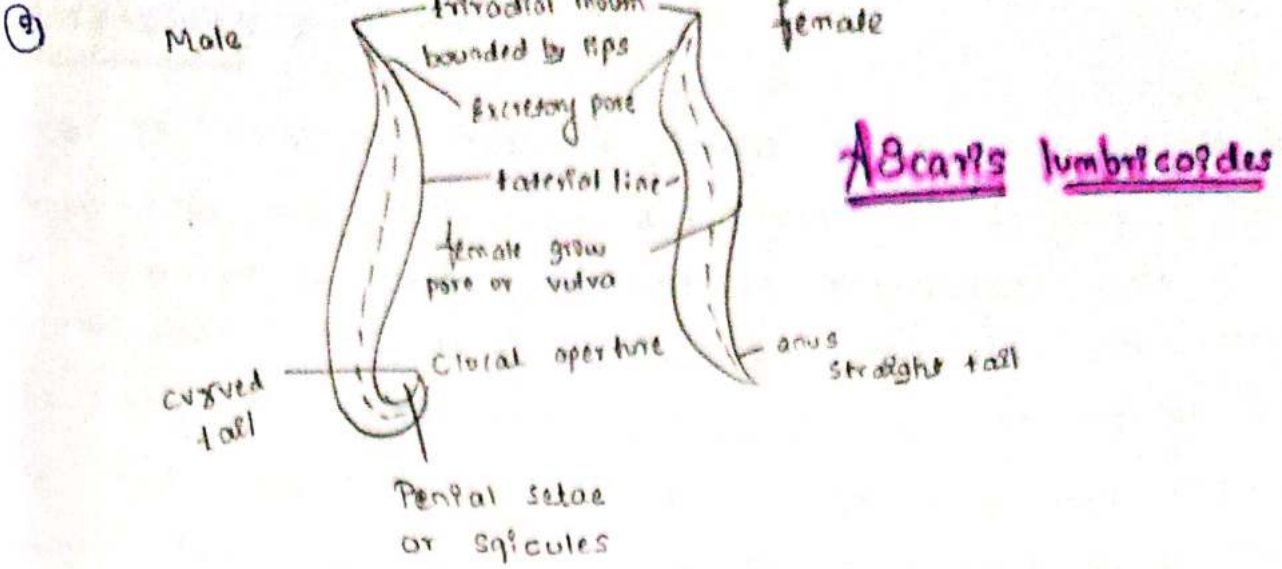 9
Male
triradial mouth
female
bounded by lips
Excretory pore
Ascaris lumbricoides
Laterial line
female grow
pore or vulva
Clocal aperture
anus
straight tail
curved
tail
Penial setae
or sqicules